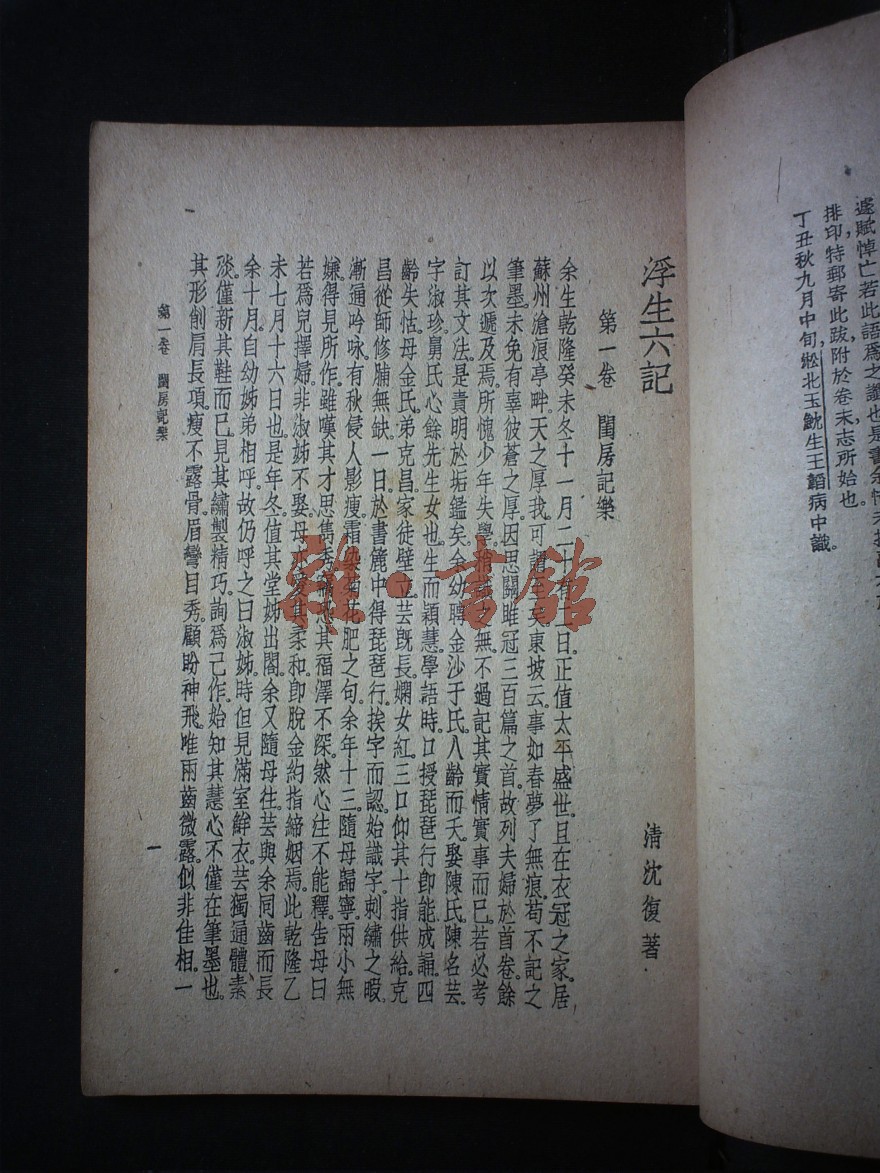 遽賦悼亡,若此語爲之讖也是書余惜未抄
排印,特郵寄此跋附於卷末志所始也。
丁丑秋九月中旬,淞北玉魫生王韜病中識。
浮生六記
清沈復著
第一卷 閨房記樂
余生乾隆癸未冬十一月二十有二日。正值太平盛世。且在衣冠之家。居
蘇州滄浪亭畔。天之厚我。可謂至矣。東坡云。事如春夢了無痕。苟不記之
筆墨。未免有辜彼蒼之厚。因思關雎冠三百篇之首。故列夫婦於首卷。餘
以次遞及焉。所愧少年失學。稍識之無。不過記其實情實事而已。若必考
訂其文法。是責明於垢鑑矣。余幼聘金沙于氏。八齡而夭。娶陳氏。陳名芸。
字淑珍。舅氏心餘先生女也。生而穎慧。學語時。口授琵琶行。卽能成誦。四
齡失怙。母金氏。弟克昌。家徒壁立。芸旣長。嫻女紅。三口仰其十指供給。克
昌從師修脯無缺。一日。於書簏中得琵琶行。挨字而認。始識字。刺繡之暇。
漸通吟咏。有秋侵人影瘦。霜染菊花肥之句。余年十三。隨母歸寧。兩小無
嫌。得見所作。雖嘆其才思雋秀。竊恐其福澤不深。然心注不能釋。告母曰。
若爲兒擇婦。非淑姊不娶。母亦愛其柔和。卽脫金約指締姻焉。此乾隆乙
未七月十六日也。是年冬。值其堂姊出閣。余又隨母往。芸與余同齒而長
余十月。自幼姊弟相呼。故仍呼之曰淑姊。時但見滿室鮮衣。芸獨通體素
淡。僅新其鞋而已。見其繡製精巧。詢爲己作。始知其慧心不僅在筆墨也。
其形削肩長項。瘦不露骨。眉彎目秀。顧盼神飛。唯兩齒微露。似非佳相。一
第一卷 閨房記樂
一
雜·書館